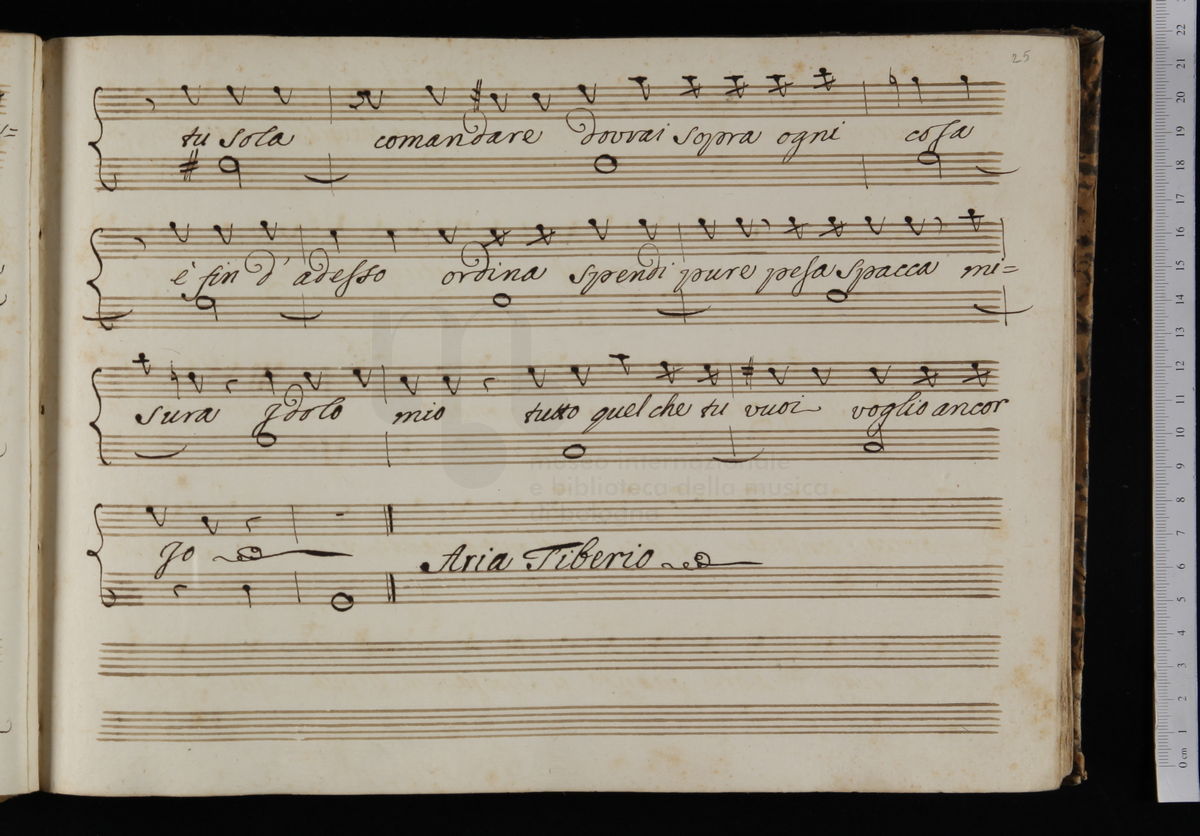 25
tu sola comandare dovrai sopra ogni cosa
è fin d'adesso ordina spendi pure pesa spacca mi=
sura Idolo mio tutto quel che tu vuoi voglio ancor
Io Aria Tiberio
museo internazionale
e biblioteca della musica
di bologna
22
21
20
19
18
17
16
15
14
13
12
11
10
9
8
7
6
5
4
3
2
1
0 cm